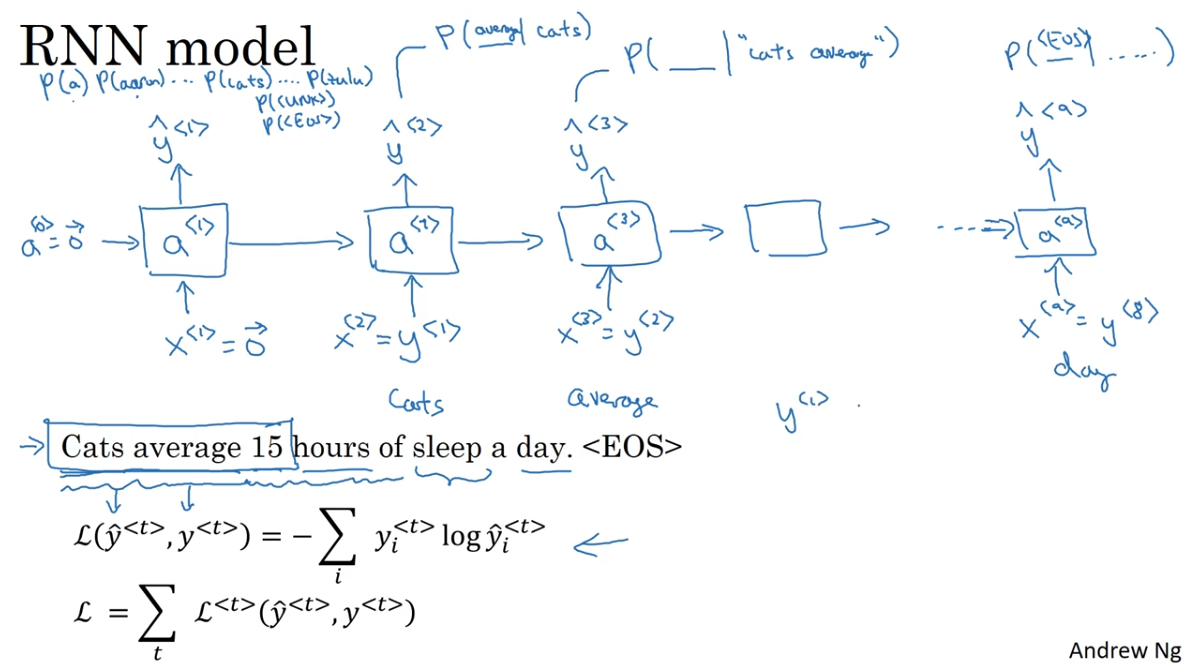 RNN model
P(a) P(aaron) ... P(cats) .... P(zulu)
P(<UNK>)
P(<EOS>)
P(average | cats)
P(__ | "cats average")
P(<EOS> | ......)
ŷ<1> ŷ<2> ŷ<3> ŷ<9>
a<0> = 0⃗ a<1> a<2> a<3> a<9>
x<1> = 0⃗ x<2> = y<1> x<3> = y<2> x<9> = y<8>
Cats average day
y<1>
Cats average 15 hours of sleep a day. <EOS>
ℒ(ŷ<t>, y<t>) = − ∑i yi<t> log ŷi<t>
ℒ = ∑t ℒ<t>(ŷ<t>, y<t>)
Andrew Ng